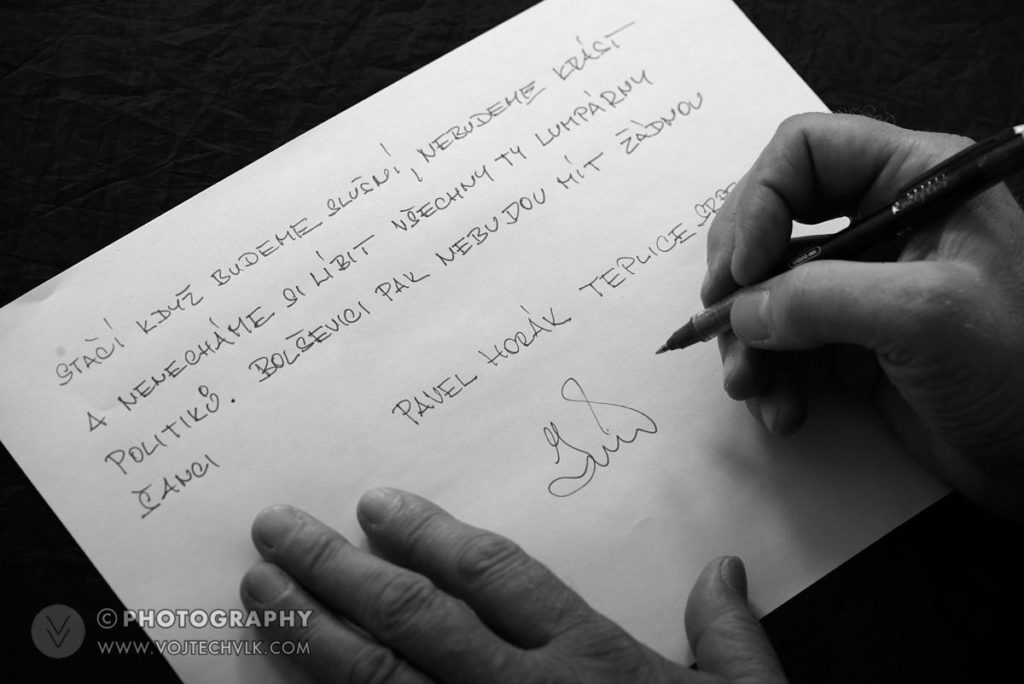 STAČÍ KDYŽ BUDEME SLUŠNÍ, NEBUDEME KRÁST
A NENECHÁME SI LÍBIT VŠECHNY TY LUMPÁRNY
POLITIKŮ. BOLŠEVICI PAK NEBUDOU MÍT ŽÁDNOU
ŠANCI
PAVEL HORÁK TEPLICE
© PHOTOGRAPHY
WWW.VOJTECHVLK.COM